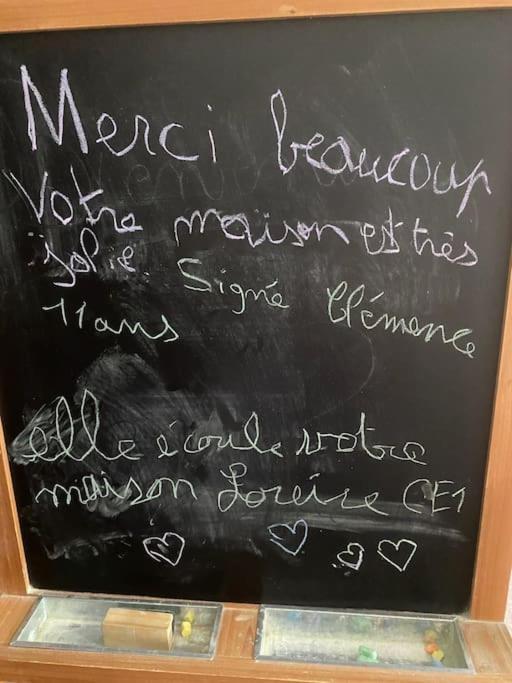 Merci beaucoup
Votre maison est très
jolie. Signé Clémence
11 ans
elle écoule votre
maison Loreire CE1